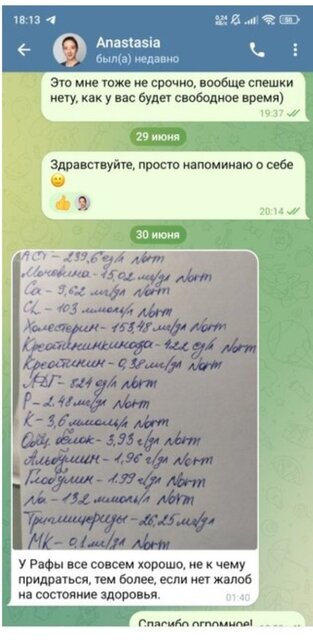 18:13
0,24
KB/s
58
Anastasia
был(а) недавно
Это мне тоже не срочно, вообще спешки
нету, как у вас будет свободное время)
19:37
29 июня
Здравствуйте, просто напоминаю о себе
🙂
👍
20:14
30 июня
АСТ - 239,6 ед/л Norm
Мочевина - 15,02 мг/дл Norm
Ca - 9,62 мг/дл Norm
CL - 103 ммоль/л Norm
Холестерин - 153,48 мг/дл Norm
Креатининкиноза - 422 ед/л Norm
Креотинин - 0,38 мг/дл Norm
ЛДГ - 824 ед/л Norm
P - 2,48 мг/дл Norm
K - 3,6 ммоль/л Norm
Общ. белок - 3,93 г/дл Norm
Альбумин - 1,96 г/дл Norm
Глобулин - 1.99 г/дл Norm
Na - 132 ммоль/л Norm
Триглицериды - 26,25 мг/дл
МК - 0,1 мг/дл Norm
У Рафы все совсем хорошо, не к чему
придраться, тем более, если нет жалоб
на состояние здоровья.
01:40
Спасибо огромное!